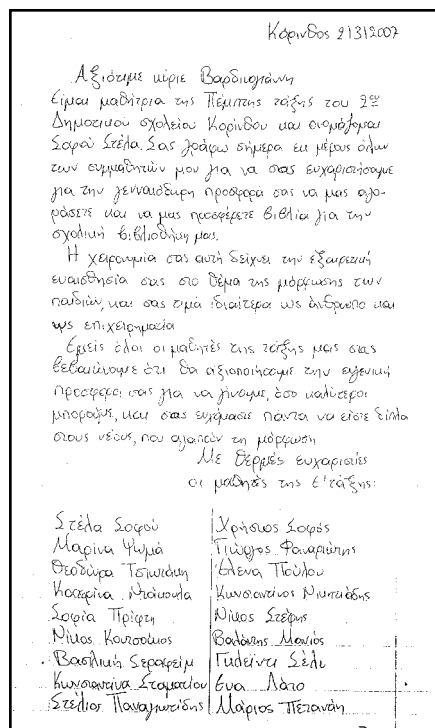 Κόρινθος 2/3/2007
Αξιότιμε κύριε Βαρδινογιάννη
Είμαι μαθήτρια της Πέμπτης τάξης του 2ου
Δημοτικού σχολείου Κορίνθου και ονομάζομαι
Σοφού Στέλα. Σας γράφω σήμερα εκ μέρους όλων
των συμμαθητών μου για να σας ευχαριστήσουμε
για την γενναιόδωρη προσφορά σας να μας αγο-
ράσετε και να μας προσφέρετε βιβλία για την
σχολική βιβλιοθήκη μας.
Η χειρονομία σας αυτή δείχνει την εξαιρετική
ευαισθησία σας στο θέμα της μόρφωσης των
παιδιών, και σας τιμά ιδιαίτερα ως άνθρωπο και
ως επιχειρηματία
Εμείς όλοι οι μαθητές της τάξης μας σας
βεβαιώνουμε ότι θα αξιοποιήσουμε την ευγενική
προσφορά σας για να γίνουμε, όσο καλύτεροι
μπορούμε, και σας ευχόμαστε πάντα να είστε δίπλα
στους νέους, που αγαπούν τη μόρφωση
Με θερμές ευχαριστίες
οι μαθητές της Ε' τάξης:
Στέλα Σοφού
Μαρίνα Ψωμά
Θεοδώρα Τσιωτάκη
Κατερίνα
Σοφία Πρίφτη
Νίκος
Βασιλική Σεραφείμ
Κωνσταντίνα Σταματίου
Στέλιος Παναγιωτίδης
Χρήστος Σοφός
Γιώργος Φαναριώτης
Έλενα Πούλου
Κωνσταντίνος
Νίκος Στέφης
Βαλάντης Μάνιος
Γκλέιντι Σέλι
Εύα Λάτο
Μάριος